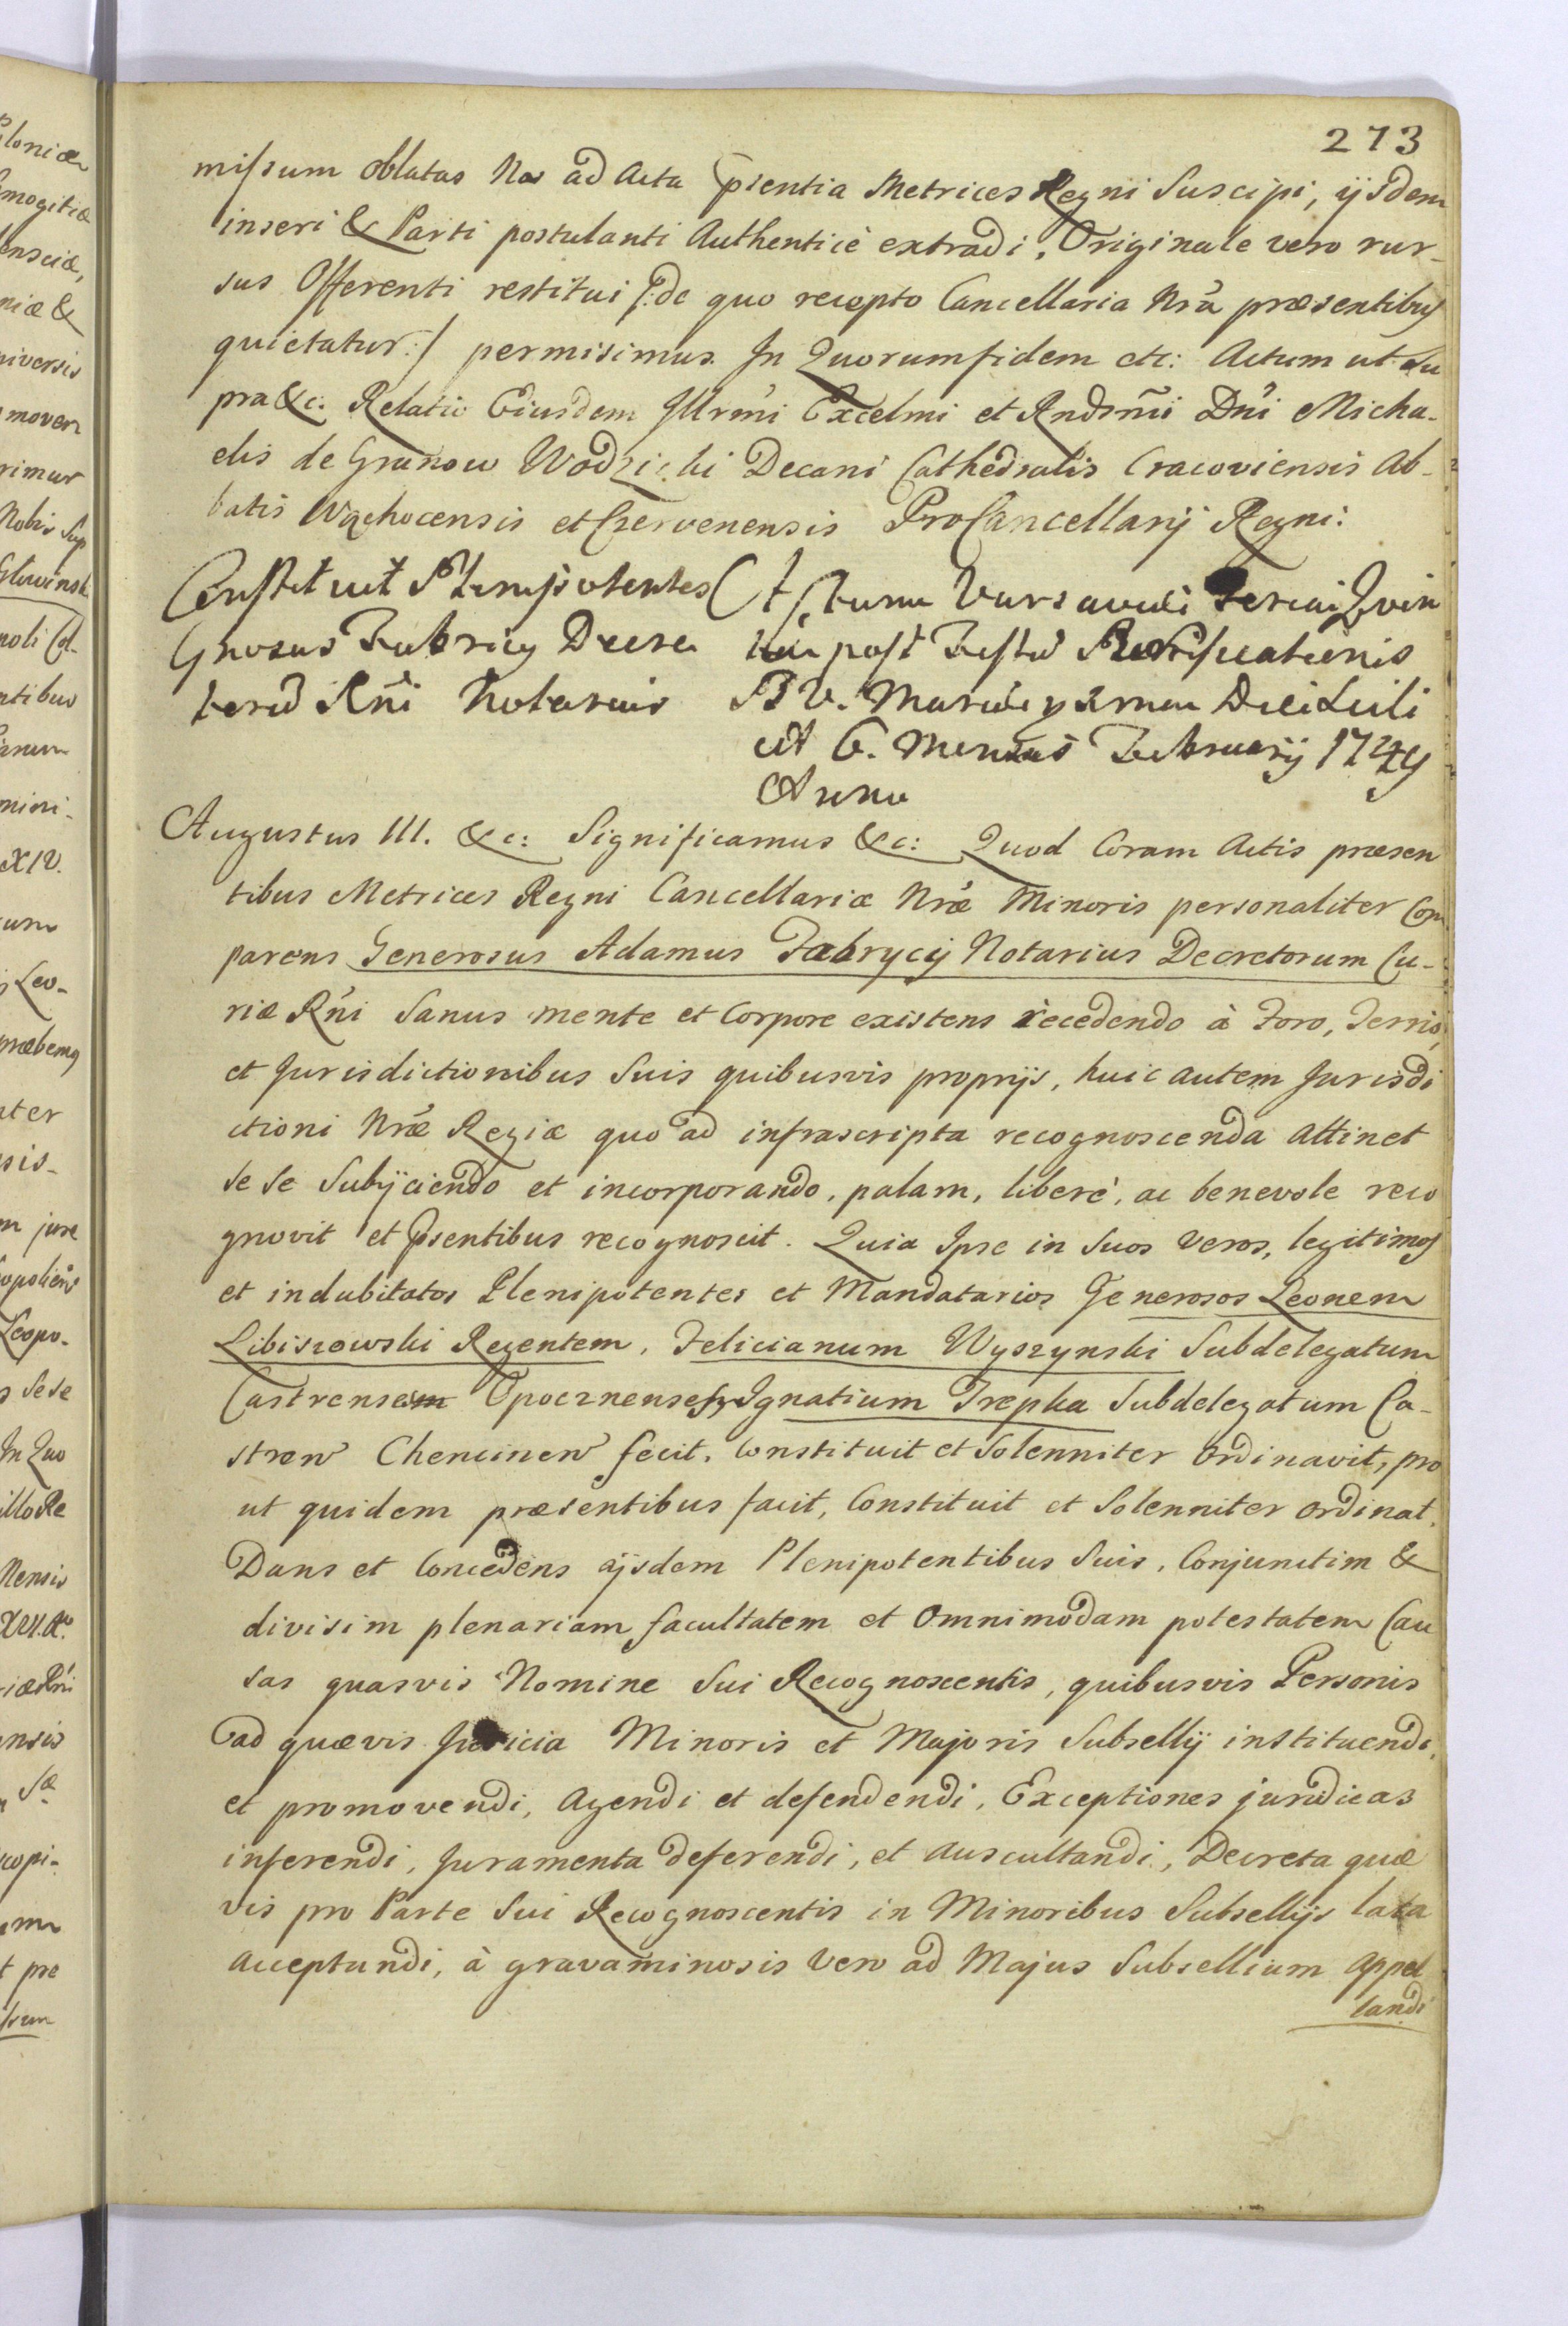 273
missum oblatas Nos ad Acta psentia Metrices Regni Suscipi, ijsdem
inseri & Parti postulanti Authenticè extradi, Originale vero rur-
sus Offerenti restitui /:de quo recepto Cancellaria Nrã præsentibus
quietatur:/ permisimus. In Quorum fidem etc: Actum ut su
pra &c. Relatio Eiusdem Illrmi Excelmi et Rndsmi Dni Micha-
elis de Granow Wodzicki Decani Cathedralis Cracoviensis Ab-
batis Wąchocensis et Czervenensis ProCancellarij Regni:
Constituit Plenipotentes
Gnosus Fabricy Decre
torũ Rni Notarius
Actum Varsaviæ Feria Quin
ta post Festũ Purificationis
B V. Mariæ prima Die Scili
cet 6. Mensis Februarij 1749
Anno
Augustus III. &c: Significamus &c: Quod Coram Actis præsen
tibus Metrices Regni Cancellariæ Nræ Minoris personaliter Com
parens Generosus Adamus Fabrycij Notarius Decretorum Cu-
riæ Rni Sanus mente et Corpore existens recedendo à Foro, Terris,
et Jurisdictionibus Suis quibusvis proprijs, huic autem Jurisdi
ctioni Nræ Regiæ quo ad infrascripta recognoscenda attinet
se se Subijciendo et incorporando, palam, liberè, ac benevole reco
gnovit et psentibus recognoscit. Quia Ipse in Suos Veros, legitimos
et indubitatos Plenipotentes et Mandatarios Generosos Leonem
Libiszowski Regentem, Felicianum Wyszynski Subdelegatum
Castrensem Opocznenses, Ignatium Trepka Subdelegatum Ca-
stren Chencinen fecit, Constituit et Solenniter Ordinavit, pro
ut quidem præsentibus facit, Constituit et Solenniter Ordinat.
Dans et Concedens ijsdem Plenipotentibus Suis, Conjunctim &
divisim plenariam facultatem et Omnimodam potestatem Cau
sas quasvis Nomine Sui Recognoscentis, quibusvis Personis
ad quævis Judicia Minoris et Majoris Subsellij instituendi,
et promovendi, Agendi et defendendi, Exceptiones juridicas
inferendi, Juramenta deferendi, et Auscultandi, Decreta quæ
vis pro Parte Sui Recognoscentis in Minoribus Subsellijs lata
Acceptandi, à gravaminosis Vero ad Majus Subsellium Appel
landi